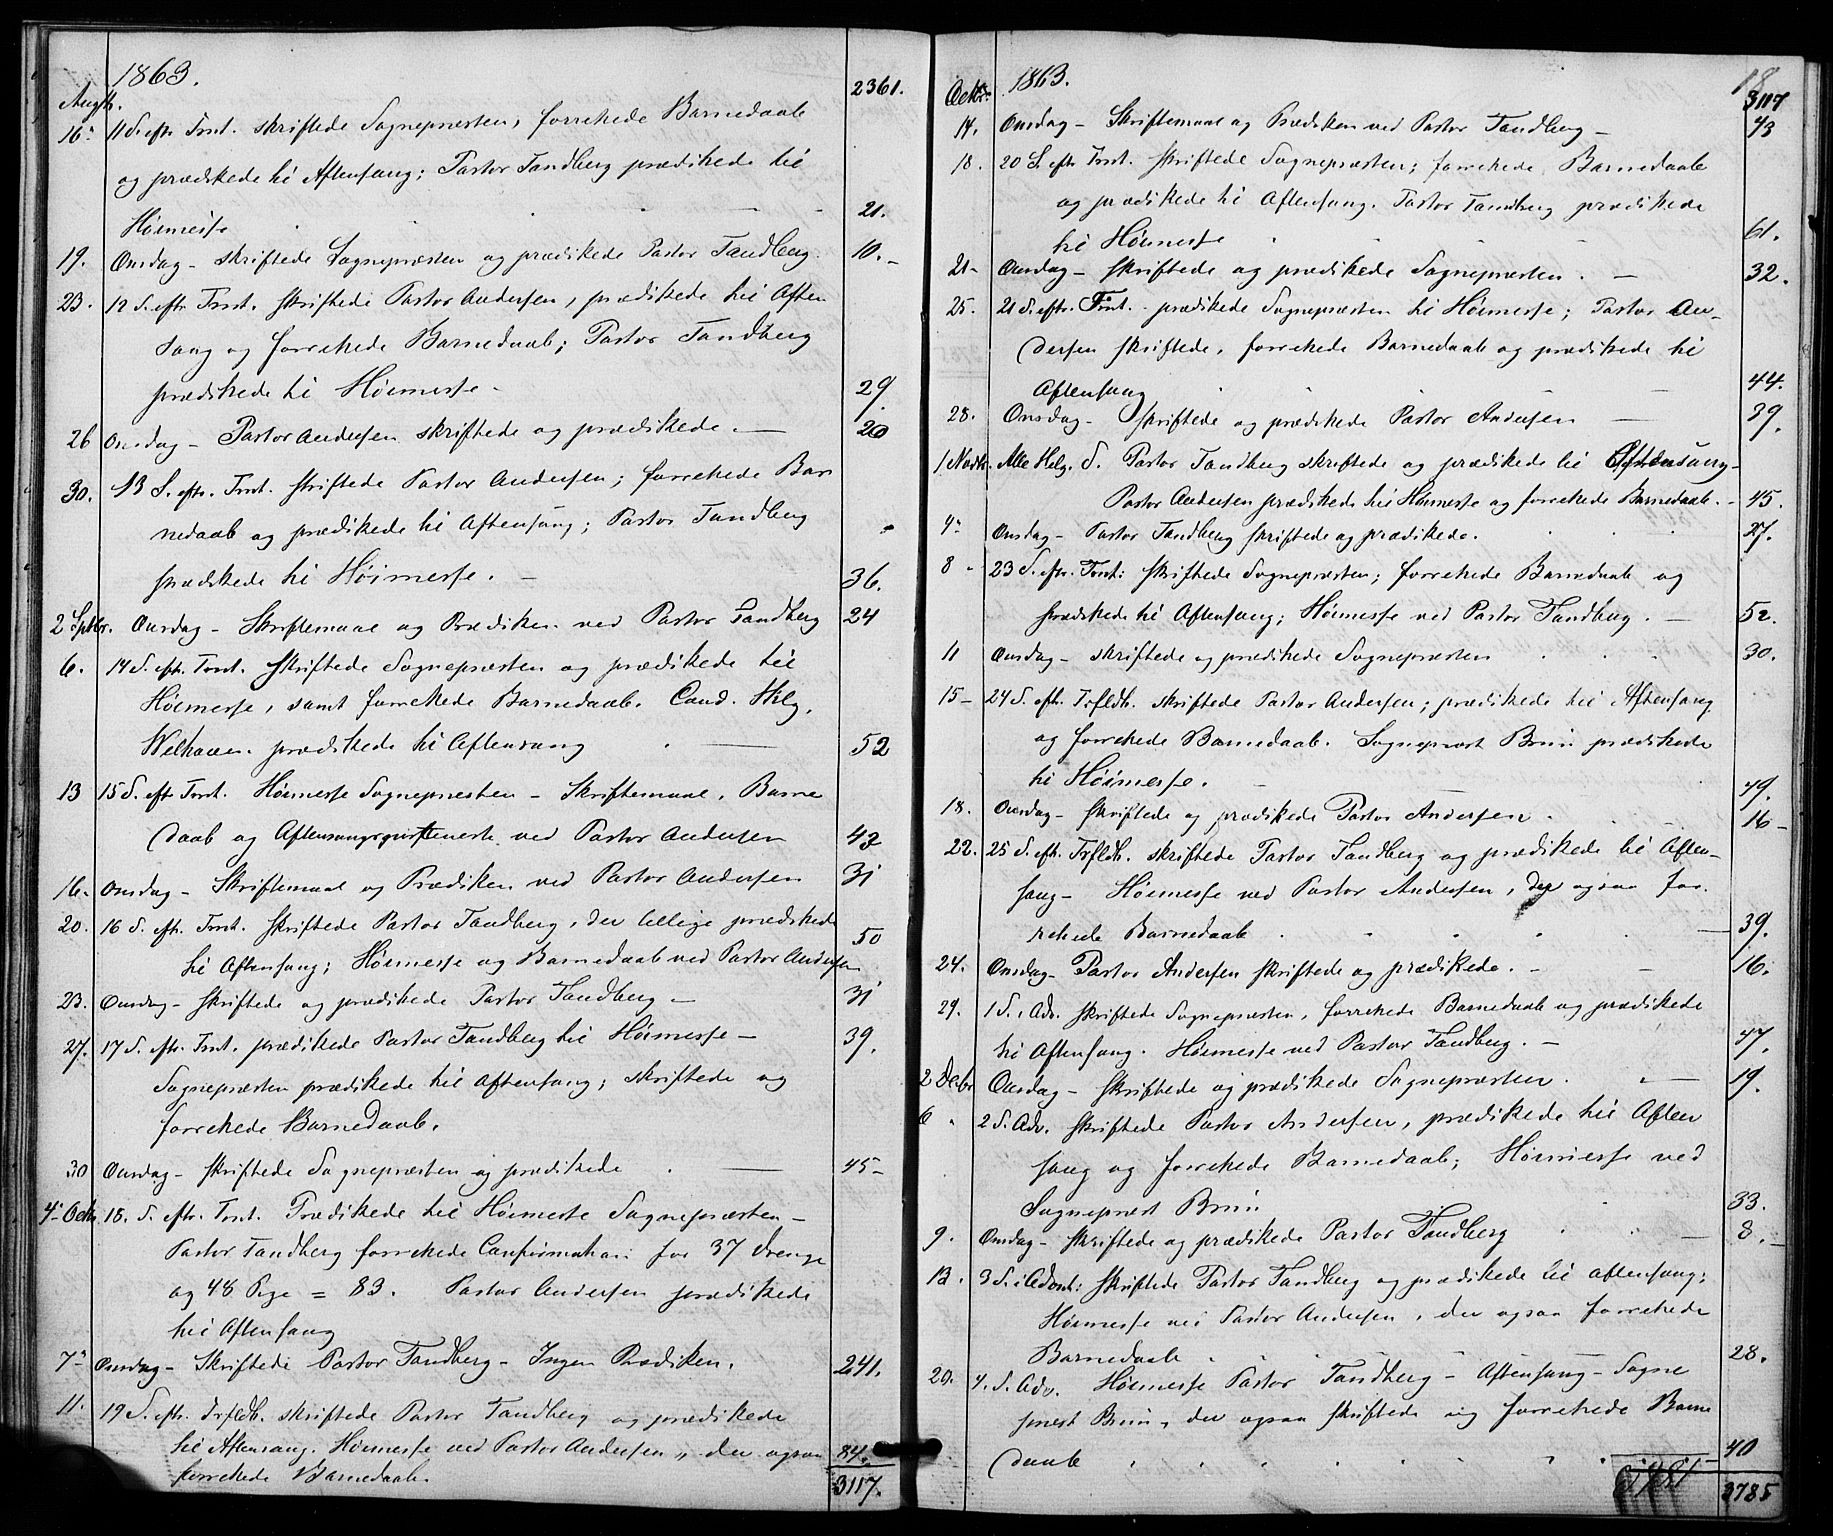 1863.
2361.
Augst.
16. 11 S. eftr. Trnt. skriftede Sognepræsten, forrettede Barnedaab
og prædikede til Aftensang; Pastor Tandberg prædikede til
Høimesse 21.
19. Onsdag - skriftede Sognepræsten og prædikede Pastor Tandberg. 10.-
23. 12 S. eftr. Trnt. skriftede Pastor Andersen, prædikede til Aften
sang og forrettede Barnedaab; Pastor Tandberg
prædikede til Høimesse - 29.
26 Onsdag - Pastor Andersen skriftede og prædikede. - 20
30. 13 S. eftr. Trnt. skriftede Pastor Andersen; forrettede Bar
nedaab og prædikede til Aftensang; Pastor Tandberg
prædikede til Høimesse. - 36.
2 Sptbr. Onsdag - Skriftemaal og Prædiken ved Pastor Tandberg 24
6. 14 S. eftr. Trnt. skriftede Sognepræsten og prædikede til
Høimesse, samt forrettede Barnedaab. Cand. Hilg.
Welhaven prædikede til Aftensang 52
13 15 S. eftr Trnt. Høimesse Sognepræsten - Skriftemaal, Barne
daab og Aftensangsgudstjeneste ved Pastor Andersen 42
16. Onsdag - Skriftemaal og Prædiken ved Pastor Andersen 31
20. 16 S. eftr. Trnt. skriftede Pastor Tandberg, der tillige prædikede
til Aftensang; Høimesse og Barnedaab ved Pastor Andersen 50
23. Onsdag - skriftede og prædikede Pastor Tandberg - 31
27. 17 S. eftr. Trnt. prædikede Pastor Tandberg til Høimesse - 39.
Sognepræsten prædikede til Aftensang; skriftede og
forrettede Barnedaab.
30 Onsdag - skriftede Sognepræsten og prædikede 45-
4. Octbr. 18. S. eftr. Trnt. Prædikede til Høimesse Sognepræsten -
Pastor Tandberg forrettede Confirmation for 37 Drenge
og 48 Pige = 83. Pastor Andersen prædikede
til Aftensang
7. Onsdag - Skriftede Pastor Tandberg - Ingen Prædiken. 241.
11. 19 S. eftr. Trfldh. skriftede Pastor Tandberg og prædikede
til Aftensang. Høimesse ved Pastor Andersen, der ogsaa 84.
forrettede Barnedaab. 3117.
18
Octbr. 1863. 3117
14. Onsdag - Skriftemaal og Prædiken ved Pastor Tandberg - 43
18. 20 S. eftr Trnt. skriftede Sognepræsten; forrettede Barnedaab
og prædikede til Aftensang. Pastor Tandberg prædikede
til Høimesse 61.
21- Onsdag - skriftede og prædikede Sognepræsten. - 32.
25. 21 S. eftr. Trnt. - prædikede Sognepræsten til Høimesse; Pastor An-
dersen skriftede, forrettede Barnedaab og prædikede til
Aftensang 44.
28. Onsdag - skriftede og prædikede Pastor Andersen 39.
1 Novbr. Alle Helg. S. Pastor Tandberg skriftede og prædikede til Aftensang -
Pastor Andersen prædikede til Høimesse og forrettede Barnedaab. - 45.
4. Onsdag - Pastor Tandberg skriftede og prædikede. 27.
8 - 23 S. eftr. Trnt: skriftede Sognepræsten; forrettede Barnedaab og
prædikede til Aftensang; Høimesse ved Pastor Tandberg. - 52.
11 Onsdag - skriftede og prædikede Sognepræsten 30.
15- 24 S. eft. Trfldh. skriftede Pastor Andersen; prædikede til Aftensang
og forrettede Barnedaab. Sognepræst Bruun prædikede
til Høimesse. - 49.
18. Onsdag - skriftede og prædikede Pastor Andersen. 16-
22. 25 S. eft. Trfldh. skriftede Pastor Tandberg og prædikede til Aften-
sang - Høimesse ved Pastor Andersen, der ogsaa for-
rettede Barnedaab 39.
24. Onsdag - Pastor Andersen skriftede og prædikede. - 16.
29. 1 S. i Adv. skriftede Sognepræsten, forrettede Barnedaab og prædikede
til Aftensang. Høimesse ved Pastor Tandberg. - 47.
2 Decbr. Onsdag - skriftede og prædikede Sognepræsten. 19.
6 2 S. Adv. skriftede Pastor Andersen, prædikede til Aften
sang og forrettede Barnedaab; Høimesse ved
Sognepræst Bruun 33.
9. Onsdag - skriftede og prædikede Pastor Tandberg 8.-
13. 3 S. i Advnt: skriftede Pastor Tandberg og prædikede til Aftensang;
Høimesse ved Pastor Andersen, der ogsaa forrettede
Barnedaab 28.
20. 4. S. Adv. Høimesse Pastor Tandberg - Aftensang - Sogne
præst Bruun, der ogsaa skriftede og forrettede Barne
daab 40
3785